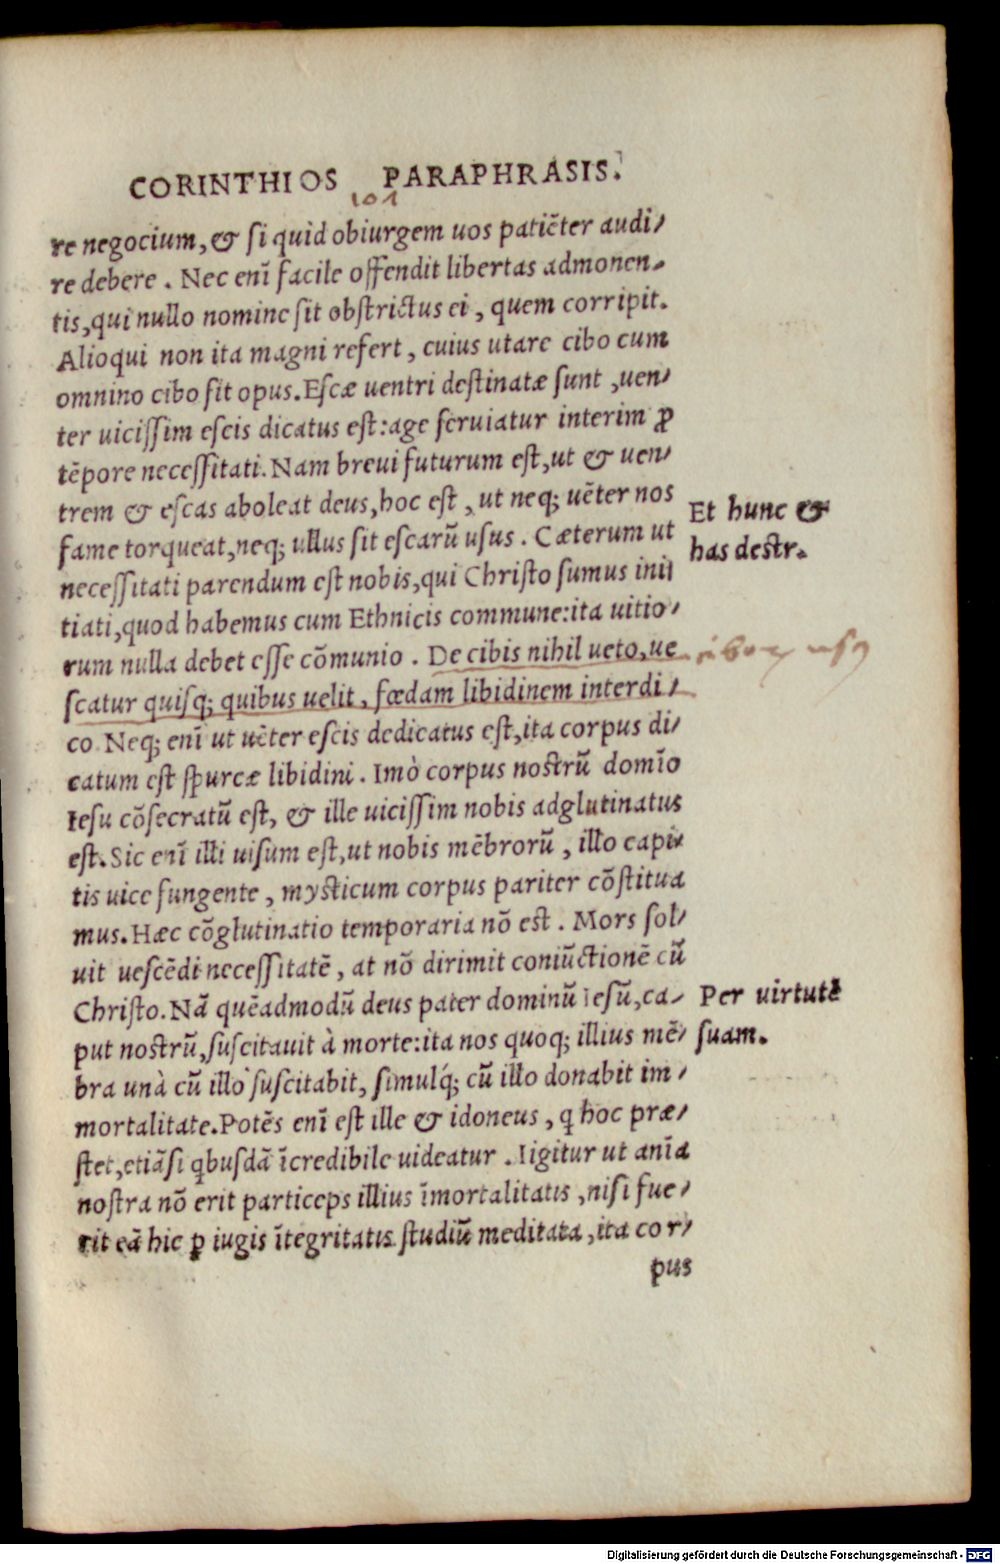 CORINTHIOS PARAPHRASIS.
101
re negocium, & si quid obiurgem uos patiēter audi/
re debere . Nec enī facile offendit libertas admonen-
tis, qui nullo nomine sit obstrictus ei , quem corripit.
Alioqui non ita magni refert , cuius utare cibo cum
omnino cibo sit opus. Escæ uentri destinatæ sunt , uen/
ter uicissim escis dicatus est: age seruiatur interim ꝓ
tēpore necessitati. Nam breui futurum est, ut & uen/
trem & escas aboleat deus, hoc est , ut neq; uēter nos
fame torqueat, neq; ullus sit escarū usus . Cæterum ut
necessitati parendum est nobis, qui Christo sumus ini/
tiati, quod habemus cum Ethnicis commune: ita uitio/
rum nulla debet esse cōmunio . De cibis nihil ueto, ue
scatur quisq; quibus uelit , fœdam libidinem interdi/
co. Neq; enī ut uēter escis dedicatus est, ita corpus di/
catum est spurcæ libidini . Imò corpus nostrū domīo
Iesu cōsecratū est, & ille uicissim nobis adglutinatus
est. Sic enī illi uisum est, ut nobis mēbrorū , illo capi/
tis uice fungente , mysticum corpus pariter cōstitua
mus. Hæc cōglutinatio temporaria nō est . Mors sol/
uit uescēdi necessitatē , at nō dirimit coniūctionē cū
Christo. Nā quēadmodū deus pater dominū Iesū, ca/
put nostrū, suscitauit à morte: ita nos quoq; illius mē/
bra unà cū illo suscitabit, simulq́; cū illo donabit im/
mortalitate. Potēs enī est ille & idoneus , ꝗ hoc præ/
stet, etiāsi ꝗbusdā īcredibile uideatur . Iigitur ut anīa
nostra nō erit particeps illius īmortalitatis , nisi fue/
rit eā hic ꝑ iugis ītegritatis studiū meditata , ita cor/
pus
Et hunc &
has destr.
ciborꝫ usꝰ
Per uirtutē
suam.
Digitalisierung gefördert durch die Deutsche Forschungsgemeinschaft - DFG